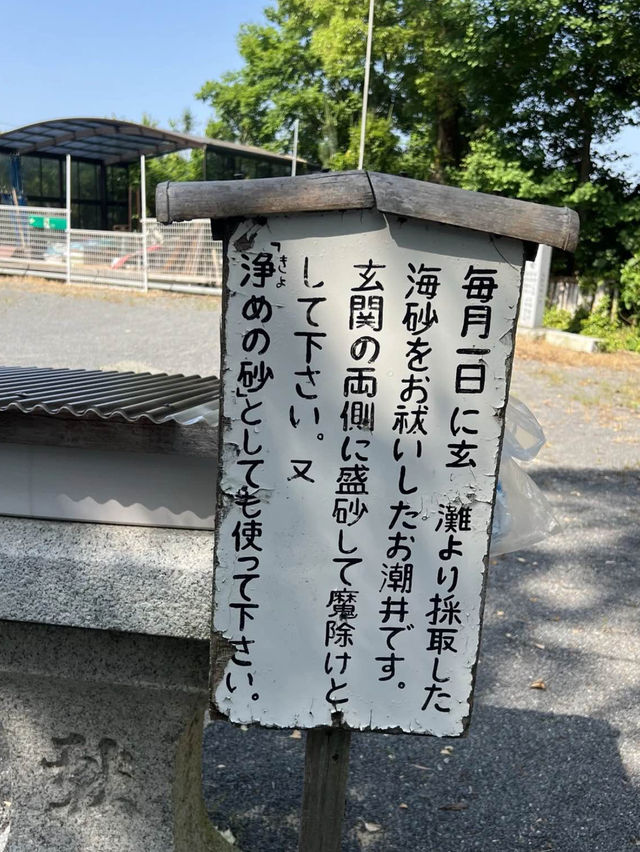 毎月一日に玄　灘より採取した
海砂をお祓いしたお潮井です。
玄関の両側に盛砂して魔除けと
して下さい。又
「浄めの砂」としても使って下さい。
きよ
秋